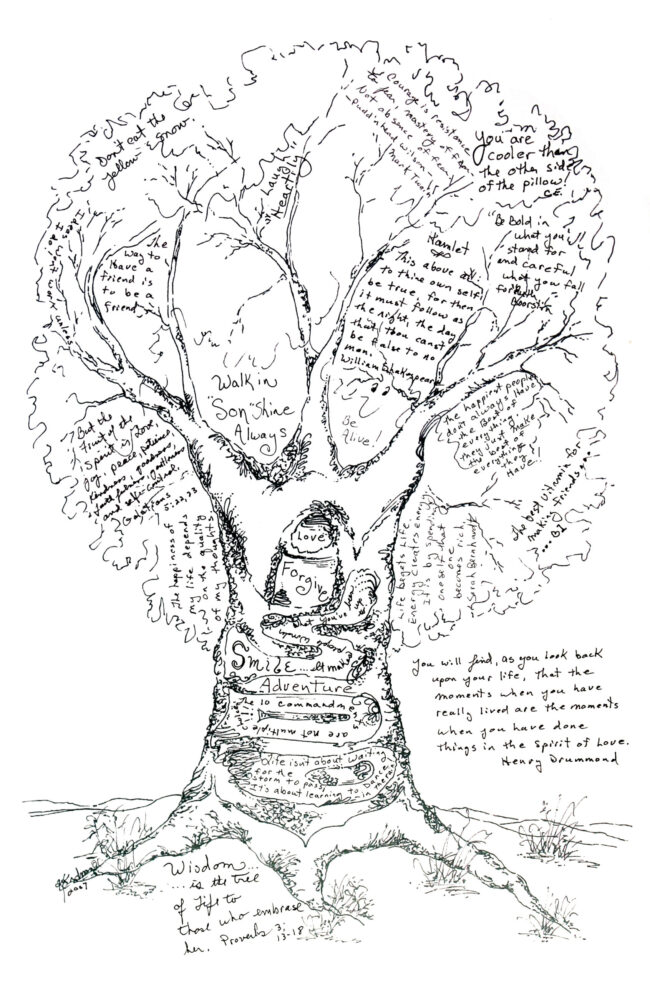 Don't eat the
yellow snow.
Laugh
Heartily
Courage is resistance
to fear, mastery of fear
Not absence of fear
Pudd'nhead Wilson
Mark Twain
You are
cooler than
the other side
of the pillow!
S.E.
"Be Bold in
what you
stand for
and careful
what you fall
for"
Boorstin
The
way to
have a
friend is
to be a
friend
Ideas
work
unless
Hamlet
This above all:
to thine own self
be true for then
it must follow as
the night, the day
that thou canst
be false to no
man.
William Shakespear
Walk in
"Son" Shine
Always
Be
Alive!
the happiest people
don't always have
the Best of
everything
they just make
the best of
everything
they
Have!
But the
fruit of the
Spirit is Love,
joy, peace, patience,
kindness, goodness,
faithfulness, gentleness
and self-control.
Galatians
5:22,23
The best vitamin for
making friends
... B1
The happiness of
my life depends
on the quality
of my thoughts
Life begets Life.
Energy creates energy
It is by spending
oneself that
one
becomes rich,
Sarah Bernhardt
Love
Forgive
Smile ... It makes
people wonder
what you've been
up
Adventure
The 10 commandme
are not multiple
Life isn't about waiting
for the
storm to pass
It's about learning to Dance
You will find, as you look back
upon your life, that the
moments when you have
really lived are the moments
when you have done
things in the spirit of love.
Henry Drummond
2007
Wisdom
.... is the tree
of life to
those who embrase
her. Proverbs 3:
13-18